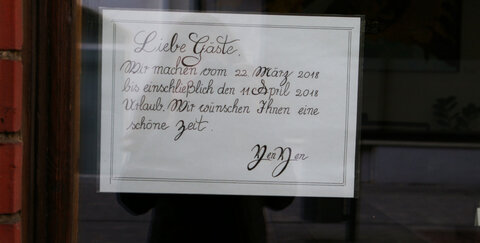 Liebe Gäste.
Wir machen vom 22 März 2018
bis einschließlich den 11 April 2018
Urlaub. Wir wünschen Ihnen eine
schöne Zeit.
YenYen